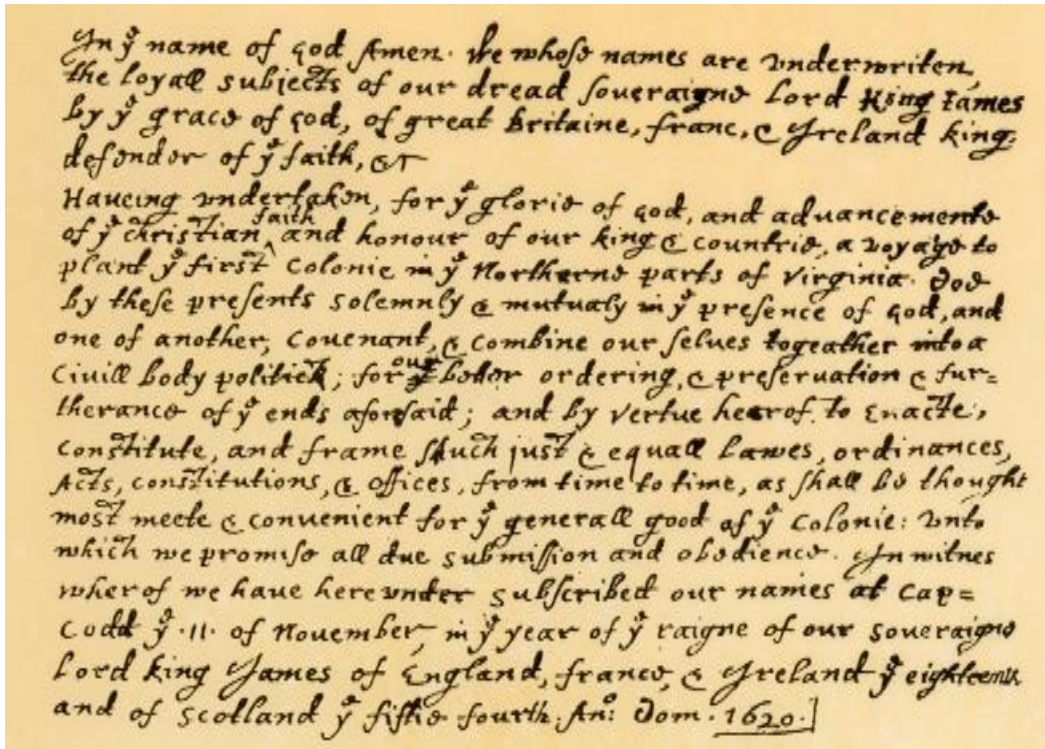 In yͤ name of god Amen. We whoſe names are vnderwriten,
the loyall subjects of our dread ſoueraigne Lord King Iames
by yͤ grace of god, of great Britaine, franc, & Ireland king,
defender of yͤ faith, &c
Haueing vndertaken, for yͤ glorie of god, and aduancemente
of yͤ christian ^faith and honour of our king & countrie, a voyage to
plant yͤ first Colonie in yͤ Northerne parts of Virginia. doe
by theſe presents solemnly & mutualy in yͤ preſence of god, and
one of another, Couenant, & Combine our ſelues togeather into a
Ciuill body politick; for our better ordering, & preſeruation & fur=
therance of yͤ ends aforſaid; and by vertue hearof, to Enacte,
Constitute, and frame ſhuch just & equall Lawes, ordinances,
Acts, constitutions, & offices, from time to time, as ſhall be thought
most meete & conuenient for yͤ generall good of yͤ Colonie: vnto
which we promiſe all due submiſsion and obedience. In witnes
wherof we have here vnder subſcribed our names at Cap=
Codd yͤ .11. of Nouember, in yͤ year of yͤ raigne of our soueraigne
Lord king James of England, france, & Ireland yͤ eighteenth
and of Scotland yͤ fiftie fourth. Anͦ: Dom. 1620.]